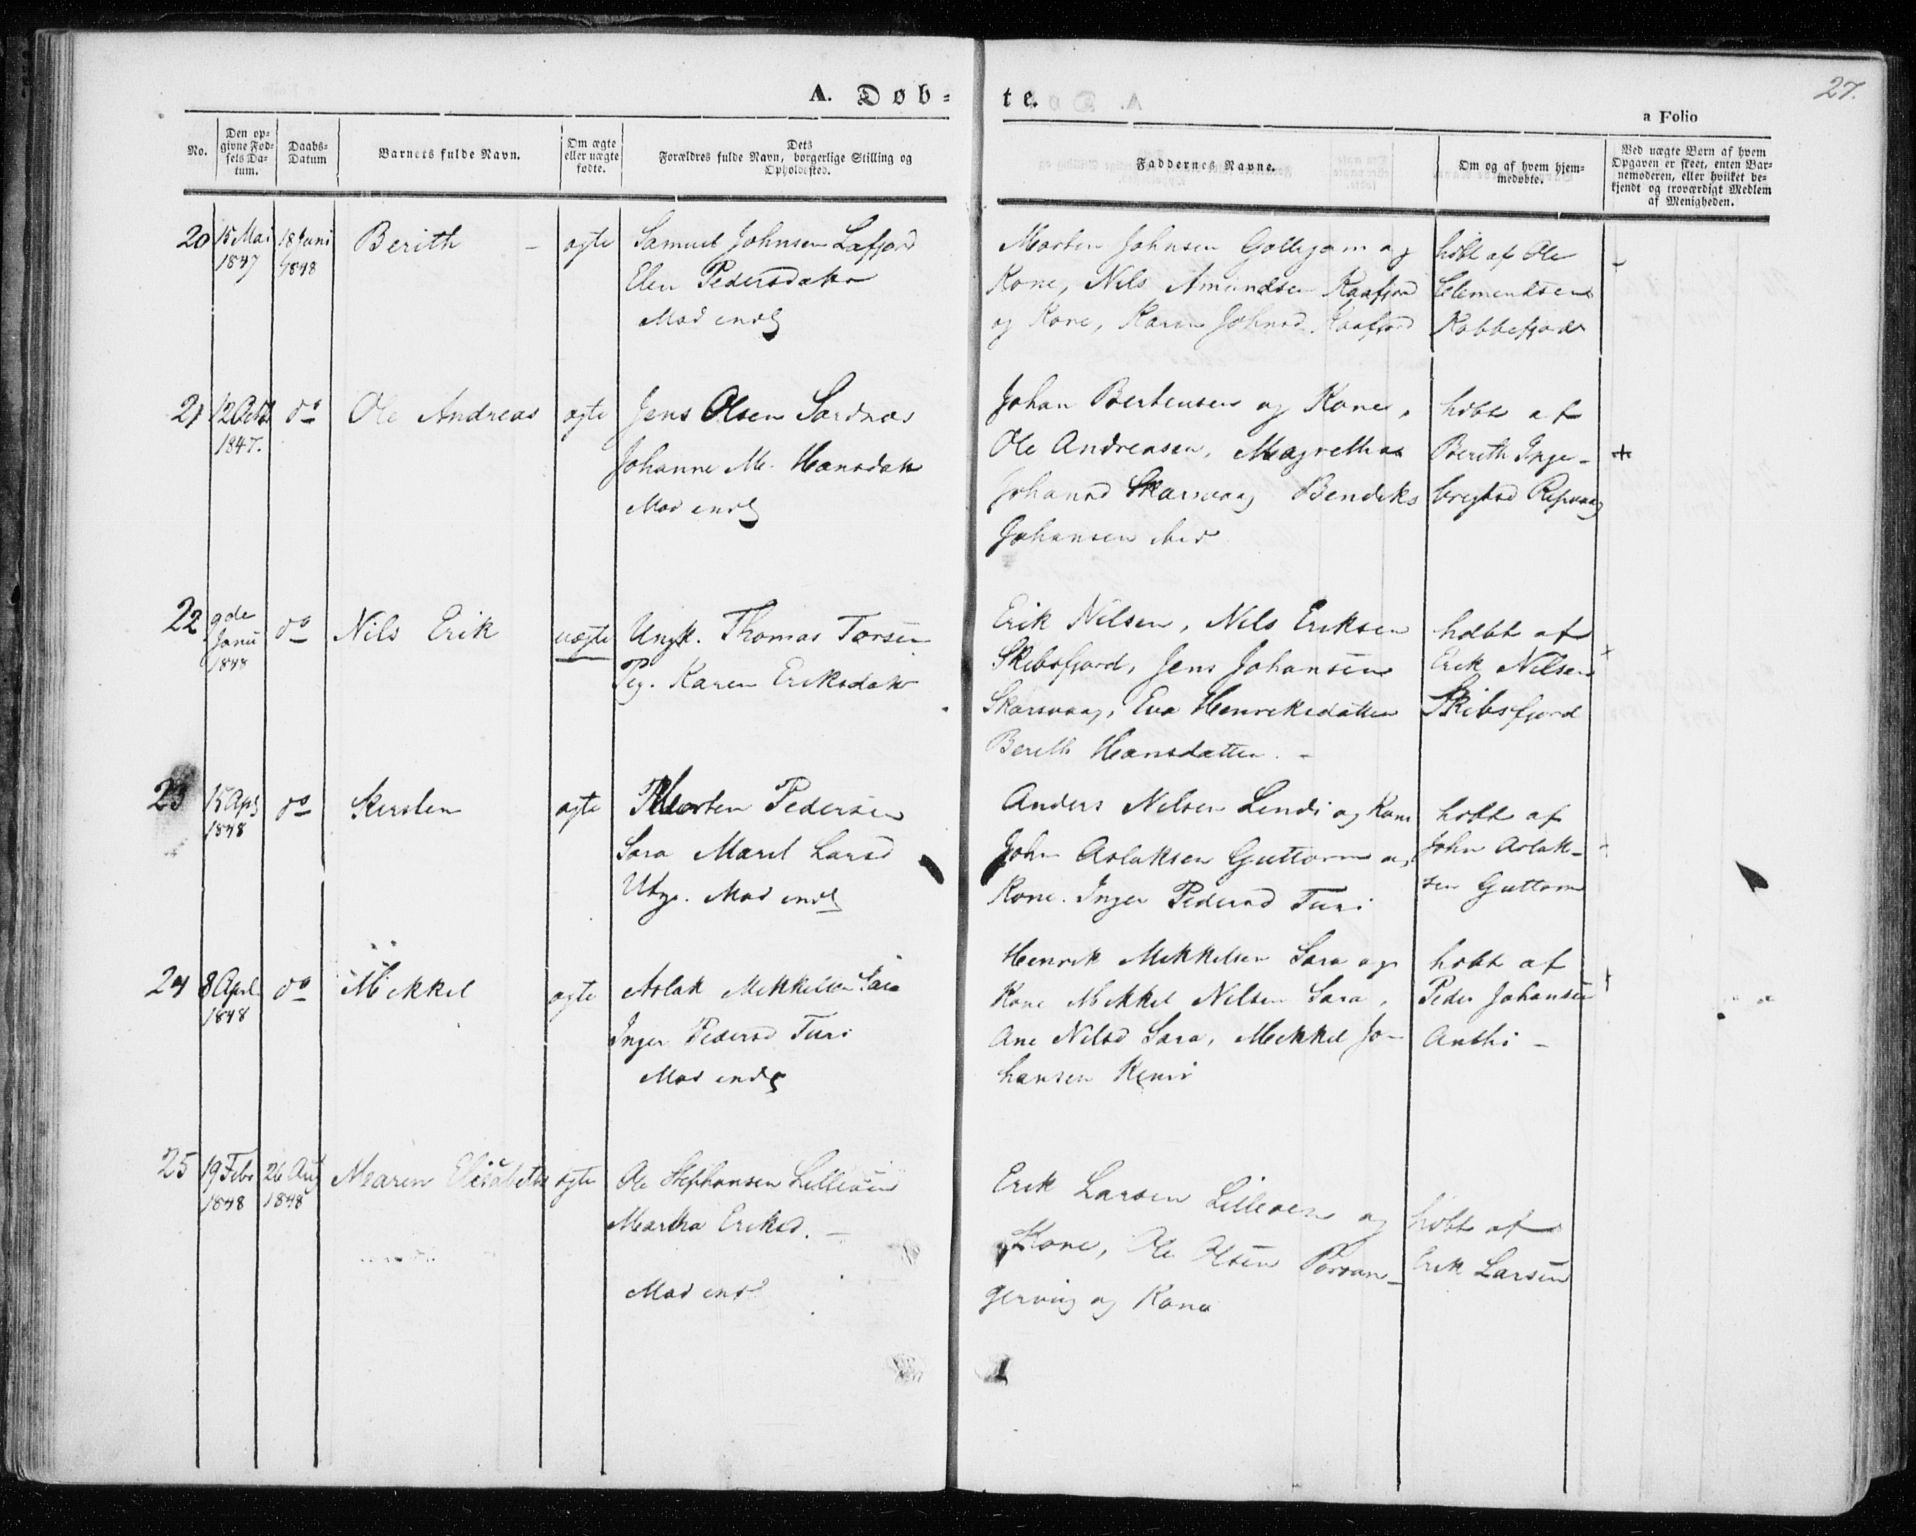 27.
A. Døb-
te.
a Folio
No.
Den op-
givne Fød-
sels Da-
tum.
Daabs-
Datum
Barnets fulde Navn.
Om ægte
eller uægte
fødte.
Dets
Forældres fulde Navn, borgerlige Stilling og
Opholdssted.
Faddernes Navne.
Om og af hvem hjem-
medøbte.
Ved uægte Børn af hvem
Opgaven er skeet, enten Bar-
nemoderen, eller hvilket be-
kjendt og troværdigt Medlem
af Menigheden.
20 15 Mai 1847
18 Juni 1848
Berith -
ægte
Samuel Johnsen Lafjord
Elen Pedersdatr
Mod endl
Morten Johnsen og
Kone, Nils Amundsen Kaafjord
og Kone, Karen Johnsd. Kaafjord
hdbt af Ole
Clemendtsen
Kobbefjord
21 12 Octb 1847.
do
Ole Andreas
ægte
Jens Olsen Sardnæs
Johanne M. Hansdatr
Mod endl
Johan Berhensen og Kone,
Ole Andreasen, Magrethe
Johansd Skarsvaag Bendiks
Johansen ibid
hdbt af
Berith Inge-
brigtsd Repvaag
22 9de Janu 1848
do
Nils Erik
uægte
Ungk. Thomas Torsen
Pig. Karen Eriksdatr
Erik Nilsen, Nils Eriksen
Skibsfjord, Jens Johansen
Skarsvaag, Eva Henriksdatter
Berith Hansdatter. -
hdbt af
Erik Nilsen
Skibsfjord
23 15 Apl 1848
do
Kirsten
ægte
Morten Pedersen
Sara Marit Larsd
Utzi. Mod endl
Anders Nilsen Lendi og Kone
John Aslaksen Guttorm og
Kone. Inger Pedersd Turi
hdbt af
John Aslak-
sen Guttorm
24 8 Apl. 1848
do
Mikkel
ægte
Aslak Mikkelsen Sara
Inger Pedersd Turi
Mod endl
Henrik Mikkelsen Sara og
Kone Mikkel Nilsen Sara,
Ane Nilsd Sara, Mikkel Jo-
hansen Kemi
hdbt af
Peder Johansen
Anthi -
25 19 Febr 1848
26 Aug 1848
Maren Elisabeth
ægte
Ole Stephansen Lilleøen
Martha Eriksd. -
Mod endl
Erik Larsen Lilleøen og
Kone, Ole Olsen Porsan-
gervig og Kone
hdbt af
Erik Larsen